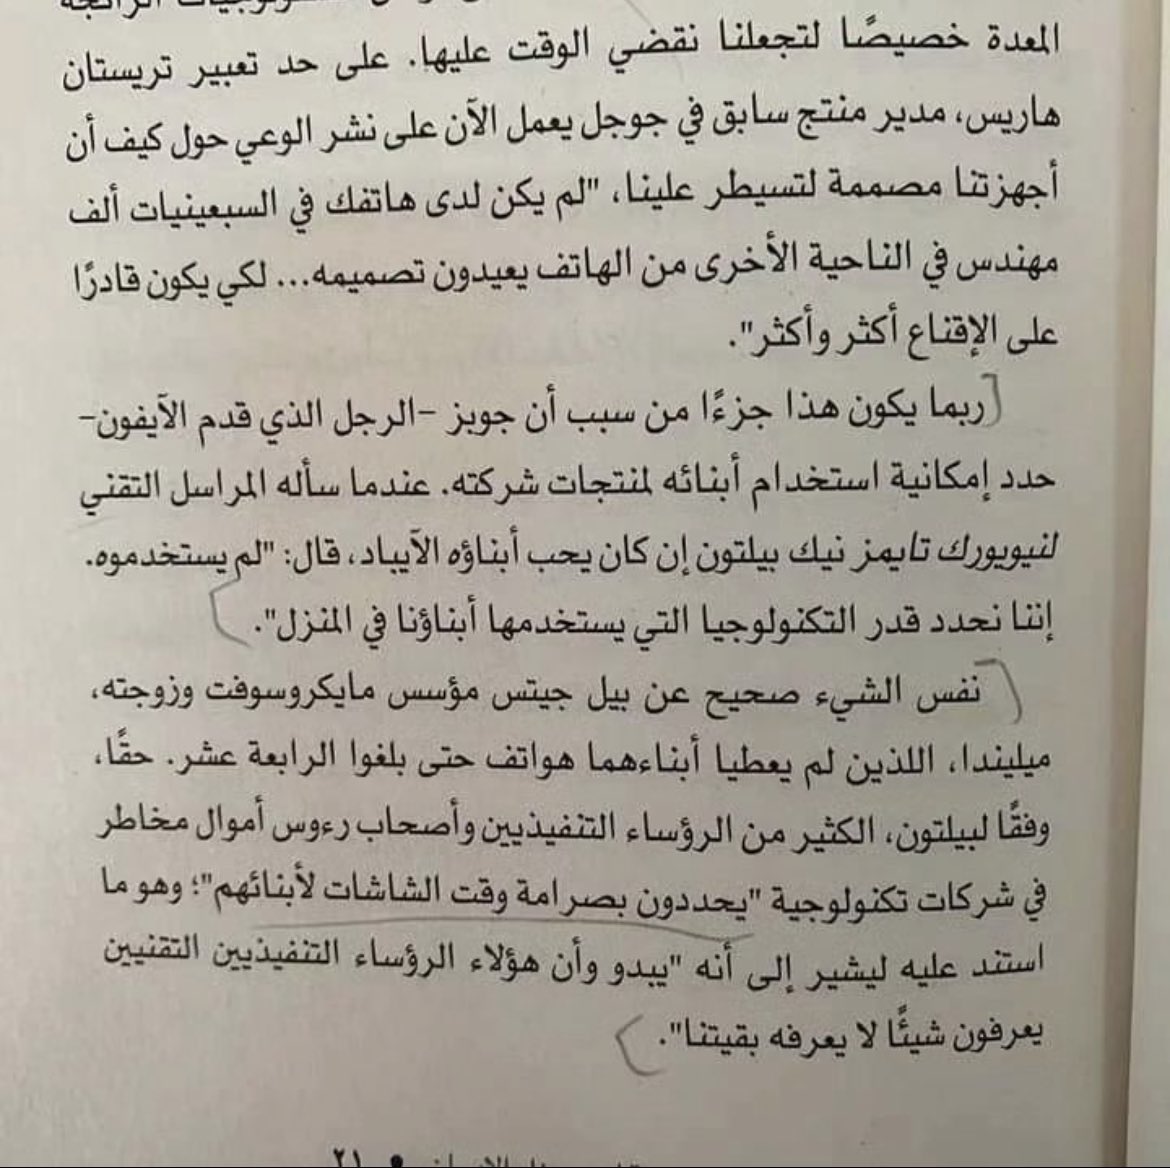 المعدة خصيصًا لتجعلنا نقضي الوقت عليها. على حد تعبير تريستان
هاريس، مدير منتج سابق في جوجل يعمل الآن على نشر الوعي حول كيف أن
أجهزتنا مصممة لتسيطر علينا، "لم يكن لدى هاتفك في السبعينيات ألف
مهندس في الناحية الأخرى من الهاتف يعيدون تصميمه... لكي يكون قادرًا
على الإقناع أكثر وأكثر".
ربما يكون هذا جزءًا من سبب أن جوبز –الرجل الذي قدم الآيفون–
حدد إمكانية استخدام أبنائه لمنتجات شركته. عندما سأله المراسل التقني
لنيويورك تايمز نيك بيلتون إن كان يحب أبناؤه الآيباد، قال: "لم يستخدموه.
إننا نحدد قدر التكنولوجيا التي يستخدمها أبناؤنا في المنزل".
نفس الشيء صحيح عن بيل جيتس مؤسس مايكروسوفت وزوجته،
ميليندا، اللذين لم يعطيا أبناءهما هواتف حتى بلغوا الرابعة عشر. حقًا،
وفقًا لبيلتون، الكثير من الرؤساء التنفيذيين وأصحاب رءوس أموال مخاطر
في شركات تكنولوجية "يحددون بصرامة وقت الشاشات لأبنائهم"؛ وهو ما
استند عليه ليشير إلى أنه "يبدو وأن هؤلاء الرؤساء التنفيذيين التقنيين
يعرفون شيئًا لا يعرفه بقيتنا".
● ٢١